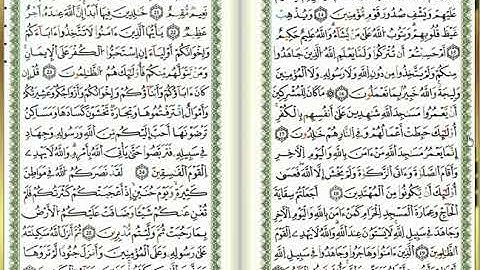 عَلَيْهِمْ وَيَشْفِ صُدُورَ قَوْمٍ مُّؤْمِنِينَ ١٤ وَيُذْهِبْ
غَيْظَ قُلُوبِهِمْ وَيَتُوبُ ٱللَّهُ عَلَىٰ مَن يَشَآءُ وَٱللَّهُ عَلِيمٌ حَكِيمٌ
١٥ أَمْ حَسِبْتُمْ أَن تُتْرَكُوا۟ وَلَمَّا يَعْلَمِ ٱللَّهُ ٱلَّذِينَ جَٰهَدُوا۟
مِنكُمْ وَلَمْ يَتَّخِذُوا۟ مِن دُونِ ٱللَّهِ وَلَا رَسُولِهِۦ وَلَا ٱلْمُؤْمِنِينَ
وَلِيجَةً وَٱللَّهُ خَبِيرٌۢ بِمَا تَعْمَلُونَ ١٦ مَا كَانَ لِلْمُشْرِكِينَ
أَن يَعْمُرُوا۟ مَسَٰجِدَ ٱللَّهِ شَٰهِدِينَ عَلَىٰٓ أَنفُسِهِم بِٱلْكُفْرِ
أُو۟لَٰٓئِكَ حَبِطَتْ أَعْمَٰلُهُمْ وَفِى ٱلنَّارِ هُمْ خَٰلِدُونَ ١٧
إِنَّمَا يَعْمُرُ مَسَٰجِدَ ٱللَّهِ مَنْ ءَامَنَ بِٱللَّهِ وَٱلْيَوْمِ ٱلْءَاخِرِ
أُو۟لَٰٓئِكَ أَن يَكُونُوا۟ مِنَ ٱلْمُهْتَدِينَ ١٨ أَجَعَلْتُمْ سِقَايَةَ
ٱلْحَآجِّ وَعِمَارَةَ ٱلْمَسْجِدِ ٱلْحَرَامِ كَمَنْ ءَامَنَ بِٱللَّهِ وَٱلْيَوْمِ ٱلْءَاخِرِ
وَجَٰهَدَ فِى سَبِيلِ ٱللَّهِ لَا يَسْتَوُۥنَ عِندَ ٱللَّهِ وَٱللَّهُ لَا يَهْدِى
ءَامَنُوا۟ وَهَاجَرُوا۟ وَجَٰهَدُوا۟ فِى سَبِيلِ ٱللَّهِ
نَعِيمٌ مُّقِيمٌ ٢١ خَٰلِدِينَ فِيهَآ أَبَدًا إِنَّ ٱللَّهَ عِندَهُۥٓ أَجْرٌ
عَظِيمٌ ٢٢ يَٰٓأَيُّهَا ٱلَّذِينَ ءَامَنُوا۟ لَا تَتَّخِذُوٓا۟ ءَابَآءَكُمْ
وَإِخْوَٰنَكُمْ أَوْلِيَآءَ إِنِ ٱسْتَحَبُّوا۟ ٱلْكُفْرَ عَلَى ٱلْإِيمَٰنِ
وَمَن يَتَوَلَّهُم مِّنكُمْ فَأُو۟لَٰٓئِكَ هُمُ ٱلظَّٰلِمُونَ ٢٣ قُلْ إِن
كَانَ ءَابَآؤُكُمْ وَأَبْنَآؤُكُمْ وَإِخْوَٰنُكُمْ وَأَزْوَٰجُكُمْ وَعَشِيرَتُكُمْ
وَأَمْوَٰلٌ ٱقْتَرَفْتُمُوهَا وَتِجَٰرَةٌ تَخْشَوْنَ كَسَادَهَا وَمَسَٰكِنُ
تَرْضَوْنَهَآ أَحَبَّ إِلَيْكُم مِّنَ ٱللَّهِ وَرَسُولِهِۦ وَجِهَادٍ
فِى سَبِيلِهِۦ فَتَرَبَّصُوا۟ حَتَّىٰ يَأْتِىَ ٱللَّهُ بِأَمْرِهِۦ وَٱللَّهُ لَا يَهْدِى
ٱلْقَوْمَ ٱلْفَٰسِقِينَ ٢٤ لَقَدْ نَصَرَكُمُ ٱللَّهُ فِى مَوَاطِنَ
كَثِيرَةٍ وَيَوْمَ حُنَيْنٍ إِذْ أَعْجَبَتْكُمْ كَثْرَتُكُمْ فَلَمْ
تُغْنِ عَنكُمْ شَيْـًٔا وَضَاقَتْ عَلَيْكُمُ ٱلْأَرْضُ
بِمَا رَحُبَتْ ثُمَّ وَلَّيْتُم مُّدْبِرِينَ ٢٥ ثُمَّ أَنزَلَ ٱللَّهُ سَكِينَتَهُۥ
عَلَىٰ رَسُولِهِۦ وَعَلَى ٱلْمُؤْمِنِينَ وَأَنزَلَ جُنُودًا لَّمْ تَرَوْهَا